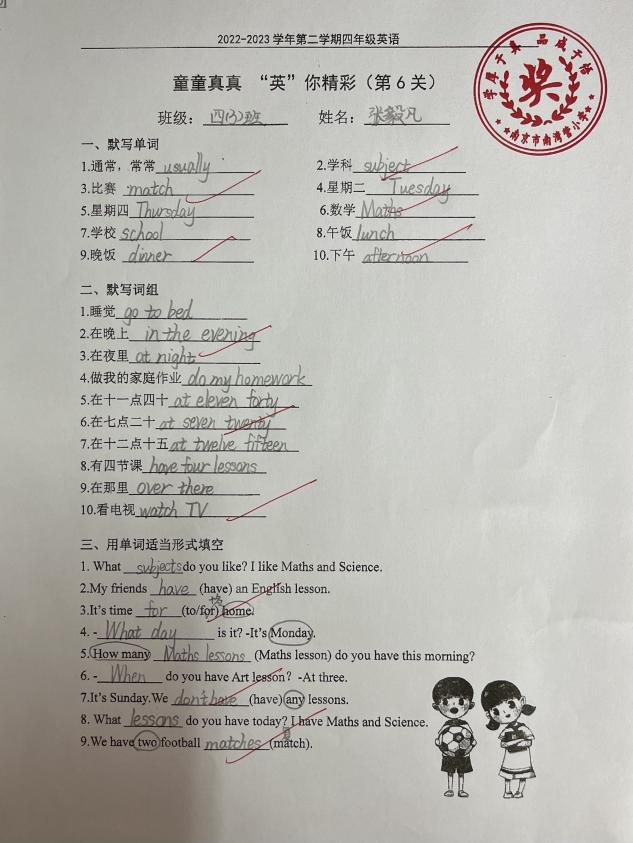 2022-2023 学年第二学期四年级英语
童童真真 “英”你精彩（第 6 关）
学厚于真 品成于培
奖
南京市南湾营小学
班级： 四(3)班 姓名： 张毅凡
一、默写单词
1.通常，常常 usually 2.学科 subject
3.比赛 match 4.星期二 Tuesday
5.星期四 Thursday 6.数学 Maths
7.学校 school 8.午饭 lunch
9.晚饭 dinner 10.下午 afternoon
二、默写词组
1.睡觉 go to bed
2.在晚上 in the evening
3.在夜里 at night
4.做我的家庭作业 do my homework
5.在十一点四十 at eleven forty
6.在七点二十 at seven twenty
7.在十二点十五 at twelve fifteen
8.有四节课 have four lessons
9.在那里 over there
10.看电视 watch TV
三、用单词适当形式填空
1. What subjects do you like? I like Maths and Science.
2.My friends have (have) an English lesson.
3.It’s time for (to/for) home.
4. - What day is it? -It’s Monday.
5. How many Maths lessons (Maths lesson) do you have this morning?
6. - When do you have Art lesson? -At three.
7.It’s Sunday.We don't have (have) any lessons.
8. What lessons do you have today? I have Maths and Science.
9.We have two football matches (match).